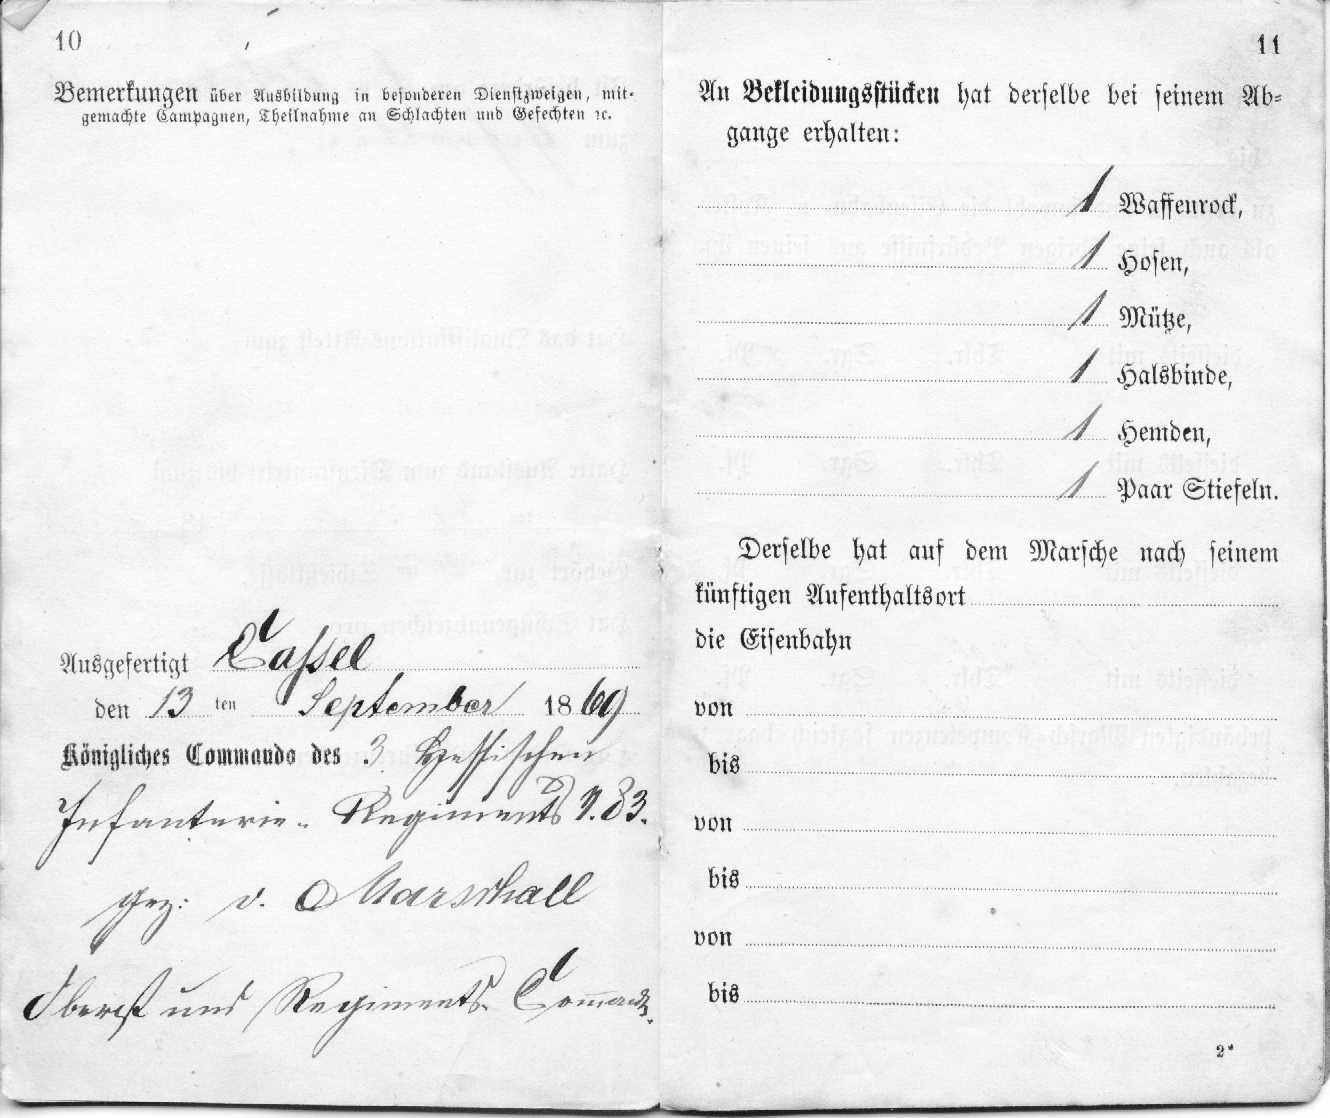 10
Bemerkungen über Ausbildung in besonderen Dienstzweigen, mit-
gemachte Campagnen, Theilnahme an Schlachten und Gefechten ꝛc.
Ausgefertigt Cassel
den 13 ten September 1869
Königliches Commando des 3. Hessischen
Infanterie-Regiments N. 83.
gez: v. Marschall
Oberst und Regiments-
11
An Bekleidungsstücken hat derselbe bei seinem Ab-
gange erhalten:
1 Waffenrock,
1 Hosen,
1 Mütze,
1 Halsbinde,
1 Hemden,
1 Paar Stiefeln.
Derselbe hat auf dem Marsche nach seinem
künftigen Aufenthaltsort
die Eisenbahn
von
bis
von
bis
von
bis
2*